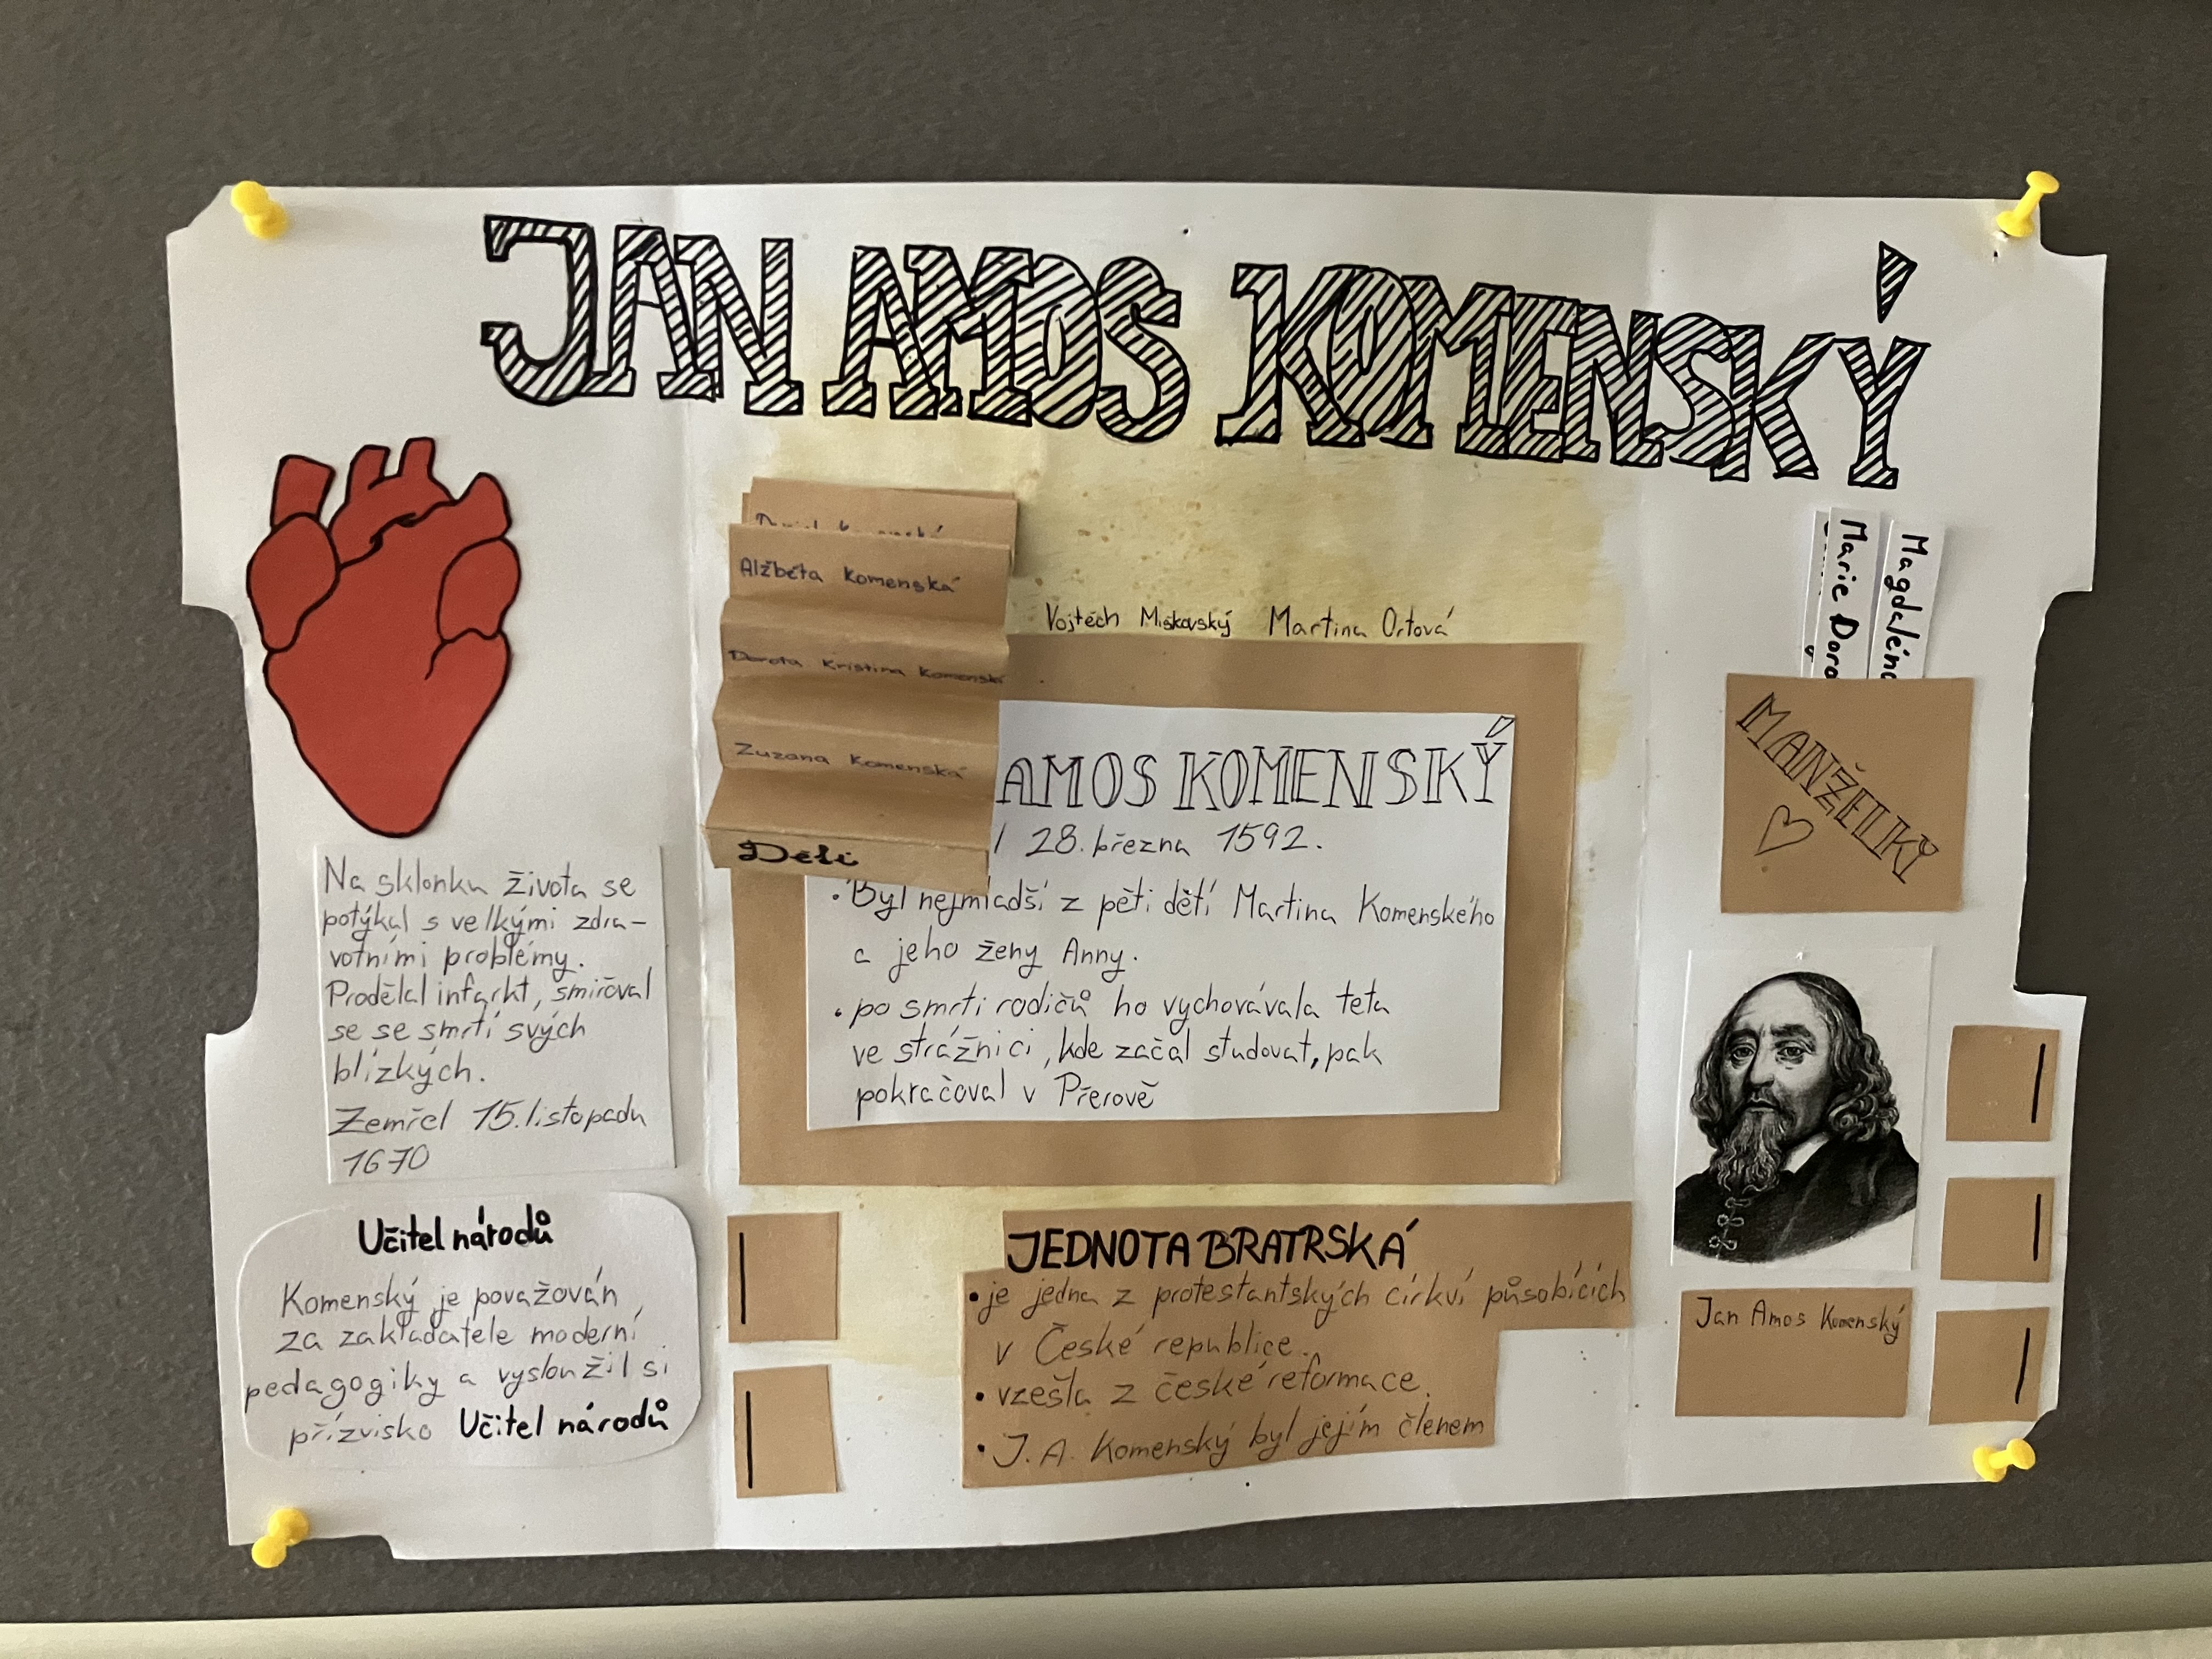 JAN AMOS KOMENSKÝ
Alžběta Komenská
Dorota Kristina Komenská
Zuzana Komenská
Děti
Vojtěch Miškovský Martina Ortová
AMOS KOMENSKÝ
28. března 1592.
• Byl nejmladší z pěti dětí Martina Komenského
a jeho ženy Anny.
• po smrti rodičů ho vychovávala teta
ve strážnici, kde začal studovat, pak
pokračoval v Přerově
Magdaléna
Marie Doro
MANŽELKY
Na sklonku života se
potýkal s velkými zdra-
votními problémy.
Prodělal infarkt, smiřoval
se se smrtí svých
blízkých.
Zemřel 15. listopadu
1670
Učitel národů
Komenský je považován
za zakladatele moderní
pedagogiky a vysloužil si
přízvisko Učitel národů
JEDNOTA BRATRSKÁ
• je jedna z protestantských církví působících
v České republice.
• vzešla z české reformace.
• J. A. Komenský byl jejím členem
Jan Amos Komenský